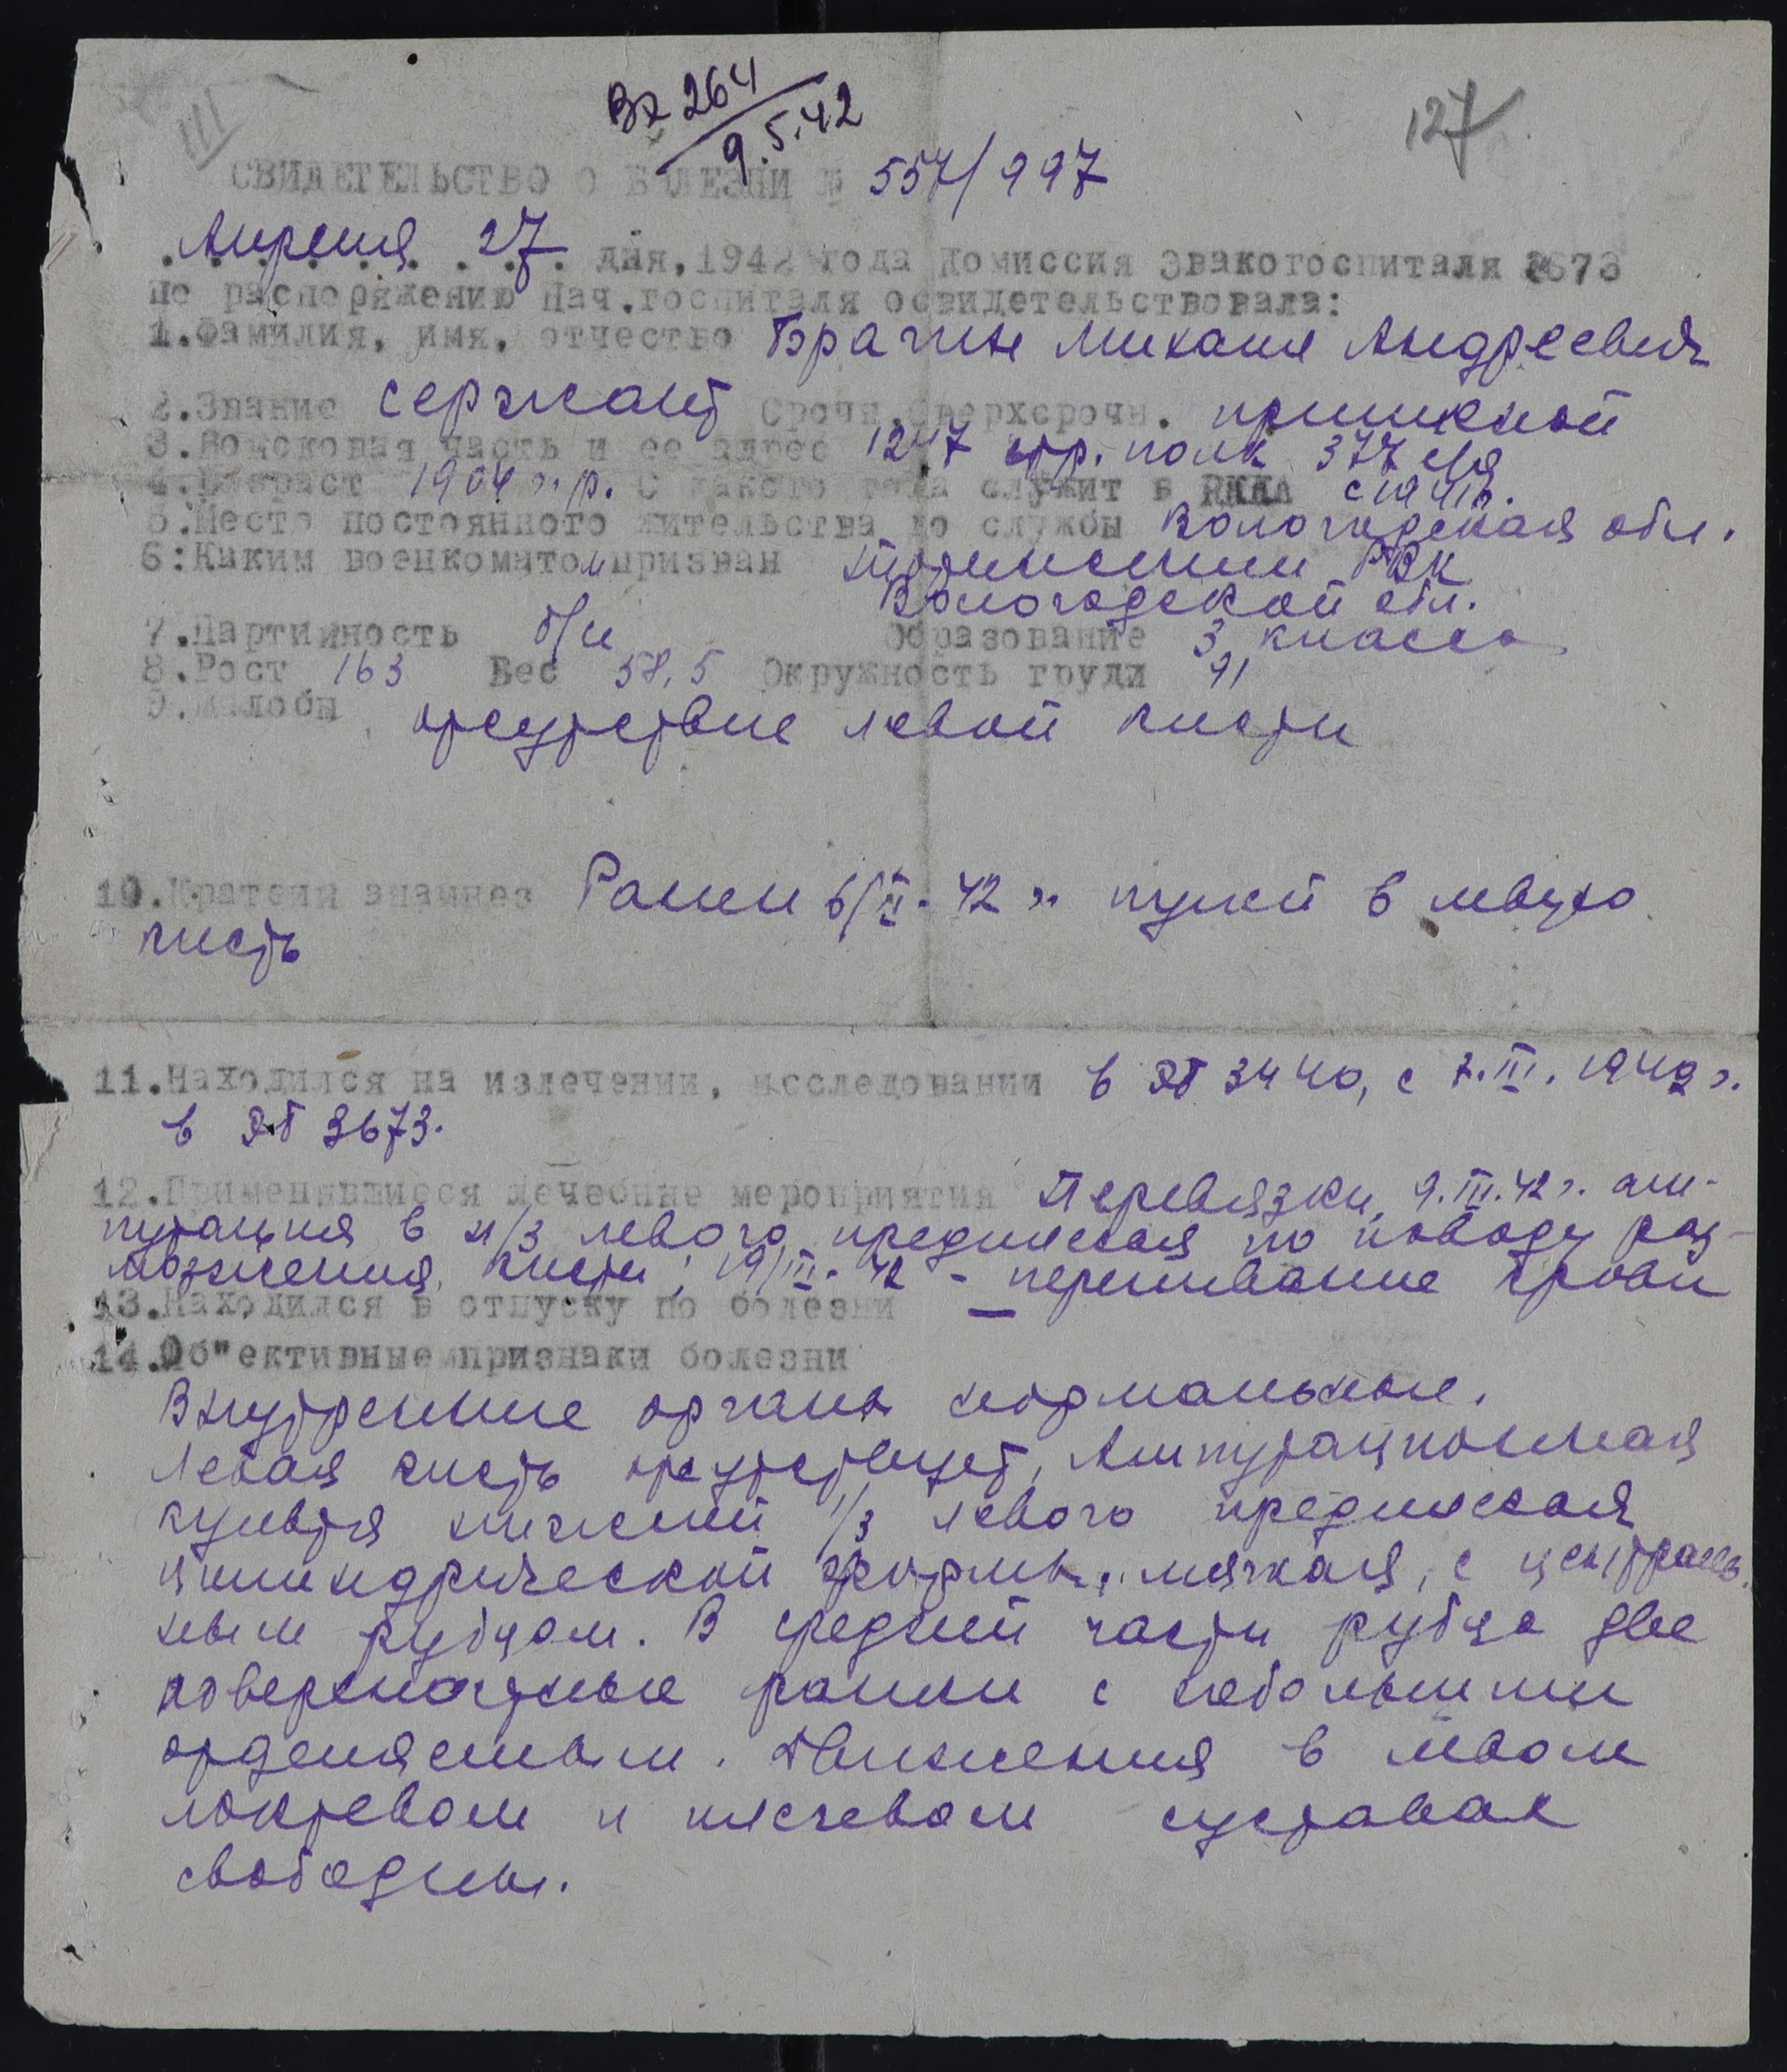 III
Вх 264
9.5.42
127
СВИДЕТЕЛЬСТВО О БОЛЕЗНИ № 557/997
Апреля 27 дня, 1942 года Комиссия Эвакогоспиталя 3673
по распоряжению Нач.госпиталя освидетельствовала:
1.Фамилия, имя, отчество Брагин Михаил Андреевич
2.Звание сержант Срочн.сверхсрочн.
3.Войсковая часть и ее адрес 1247 стр. полк 377 с/д
4.Возраст 1904 г.р. С какого года служит в РККА с 1941 г.
5.Место постоянного жительства до службы Вологодская обл.
6:Каким военкоматом призван РВК
Вологодской обл.
7.Партийность б/п Образование 3 класса
8.Рост 163 Вес 58,5 Окружность груди 91
9.Жалобы отсутствие левой кисти
10.Краткий анамнез Ранен 6/II-42 г. пулей в левую
кисть
11.Находился на излечении, исследовании в ЭГ 3440, с 7.III.1942 г.
в ЭГ 3673.
12.Применявшиеся лечебные мероприятия Перевязки, 9.III.42 г. ам-
путация в н/3 левого предплечья по поводу раз-
мозжения кисти; 19/III-42 - переливание крови
13.Находился в отпуску по болезни —
14.Об"ективные признаки болезни
Внутренние органы нормальные.
Левая кисть отсутствует, Ампутационная
культя нижней 1/3 левого предплечья
цилиндрической формы, мягкая, с централь-
ным рубцом. В средней части рубца две
поверхностные ранки с небольшим
отделяемым. Движения в левом
локтевом и плечевом суставах
свободны.